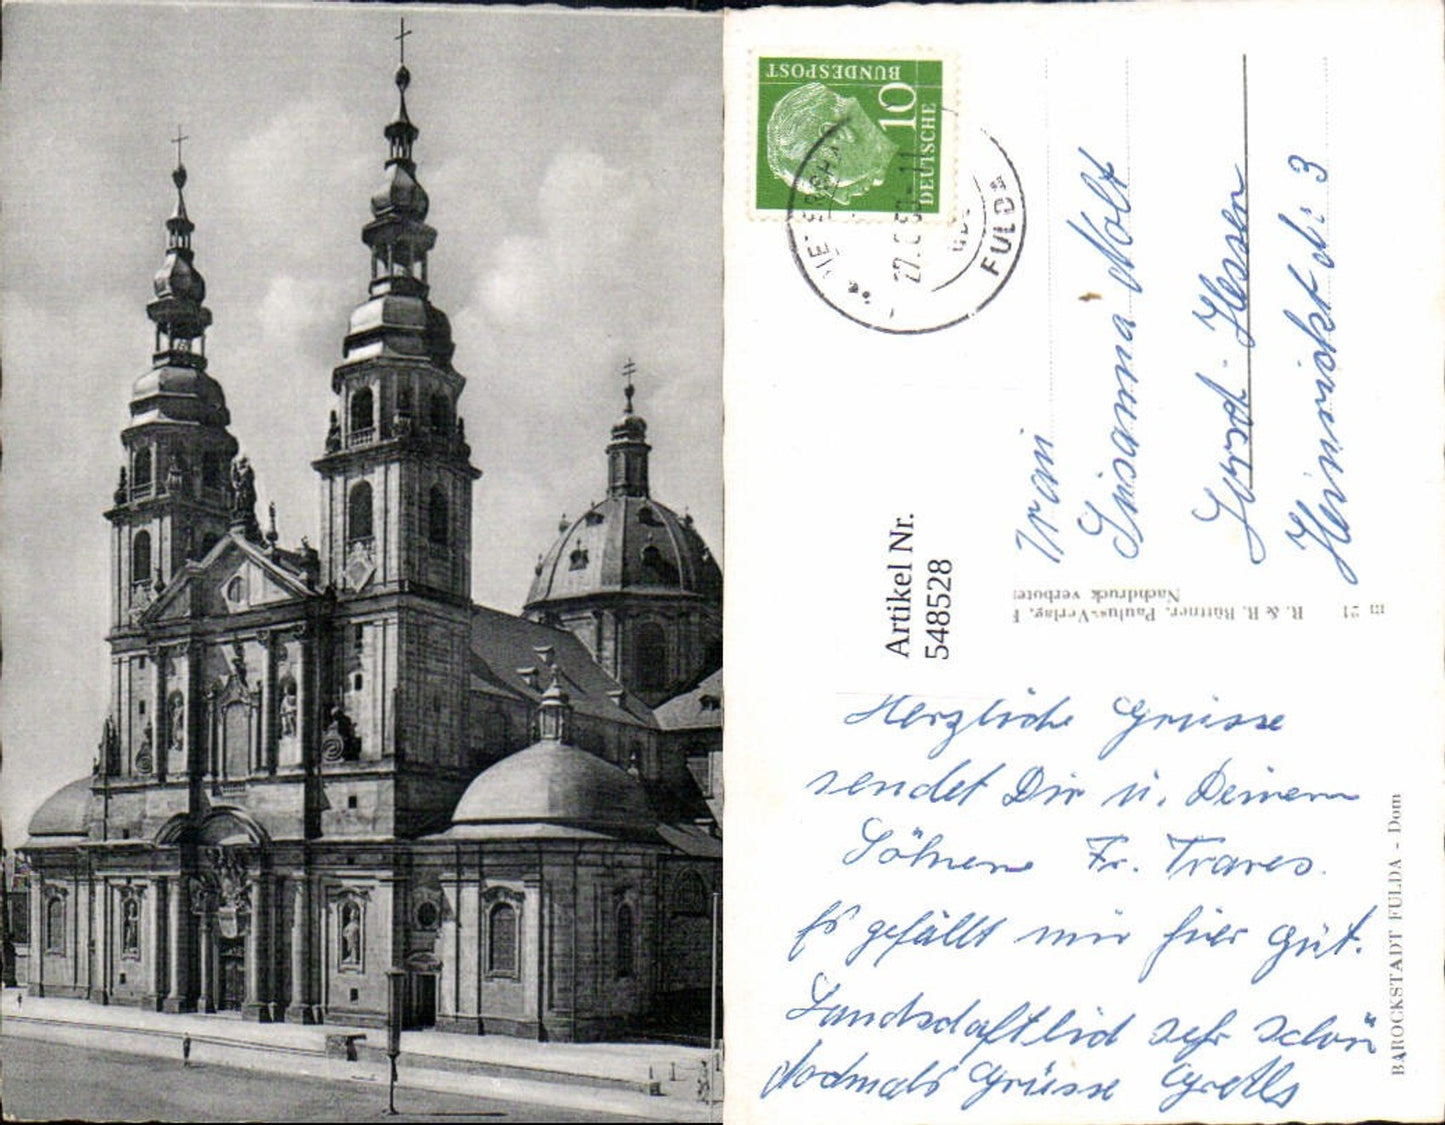 DEUTSCHE
BUNDESPOST
10
FULDA
Artikel Nr.
548528
Susanna Nolt
Hessen
R. & R. Büttner, Paulus-Verlag, F
Nachdruck verboten
m 21
Herzliche Grüsse
sendet Dir u. Deinem
Söhnen Fr. Trares.
Es gefällt mir hier gut.
Landschaftlich sehr schön
Nochmals Grüsse
BAROCKSTADT FULDA - Dom